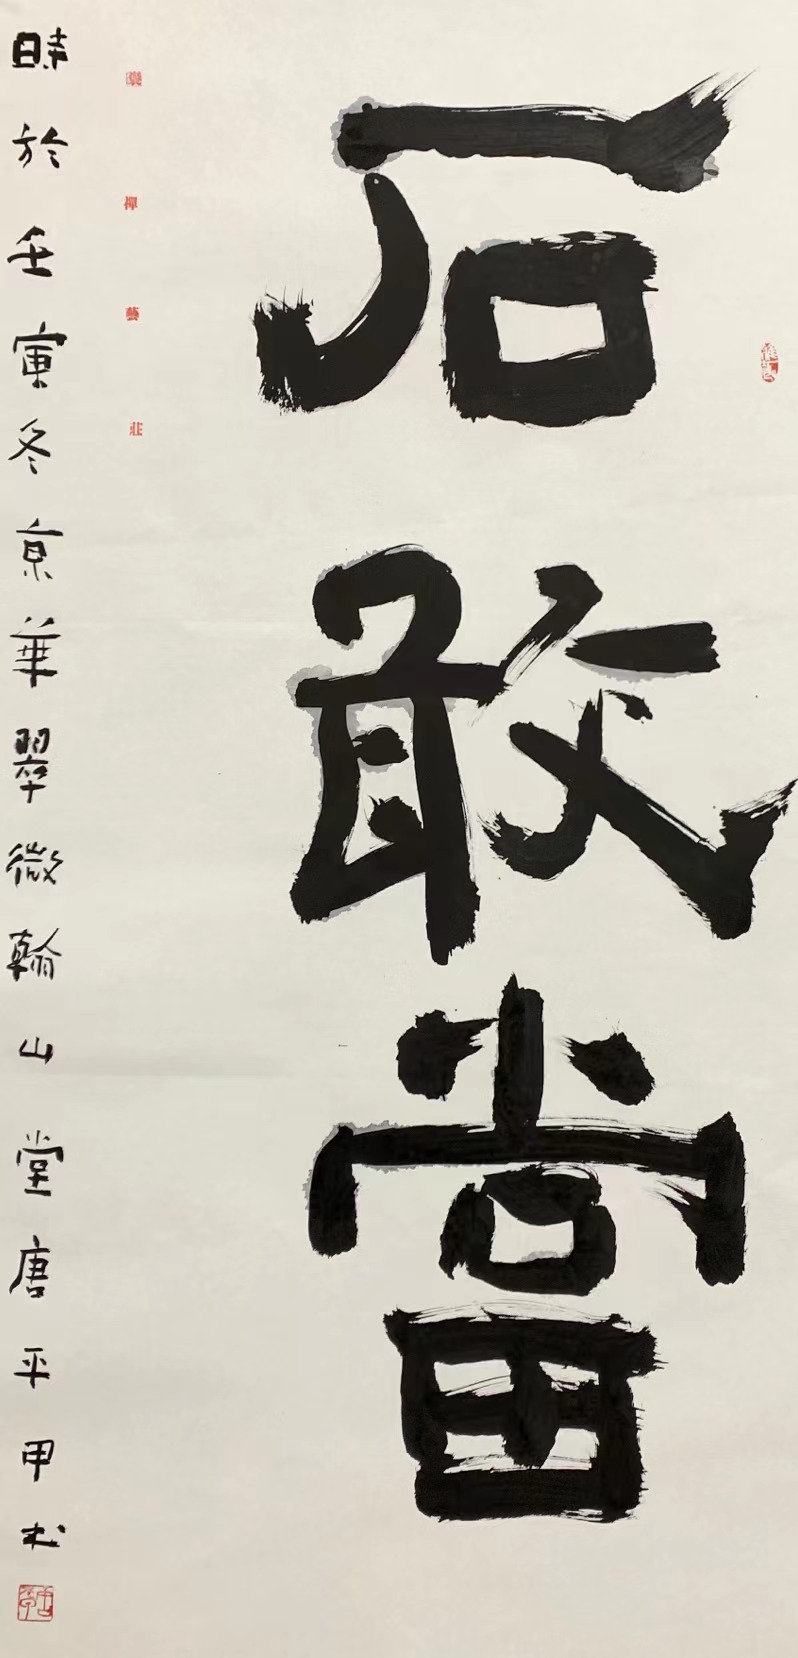 石敢當
時於壬寅冬京華翠微翰山堂唐平甲書
禪藝莊